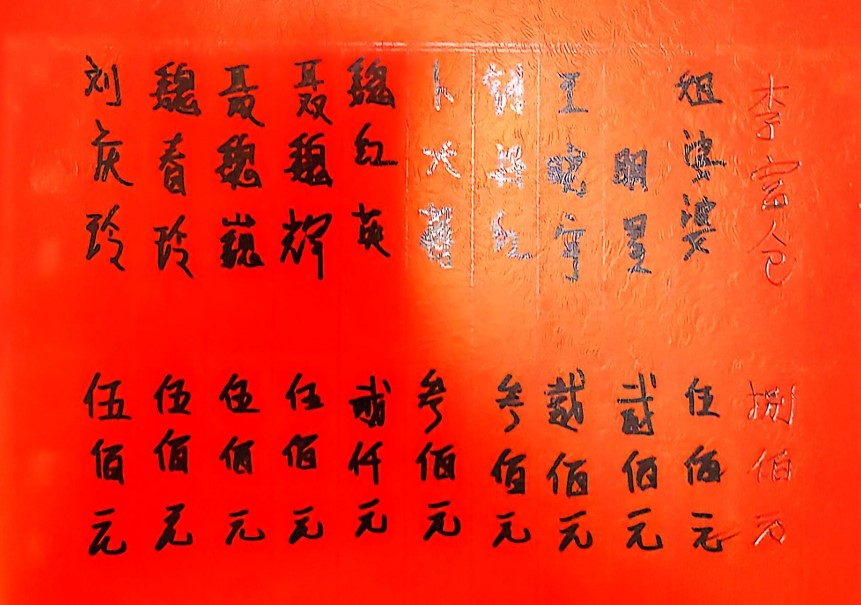 李富仓 捌佰元
姐婆婆 伍佰元
明星 贰佰元
王晓宁 贰佰元
红 叁佰元
卜 叁佰元
魏红英 贰仟元
聂魏辉 伍佰元
聂魏巍 伍佰元
魏春玲 伍佰元
刘庆玲 伍佰元